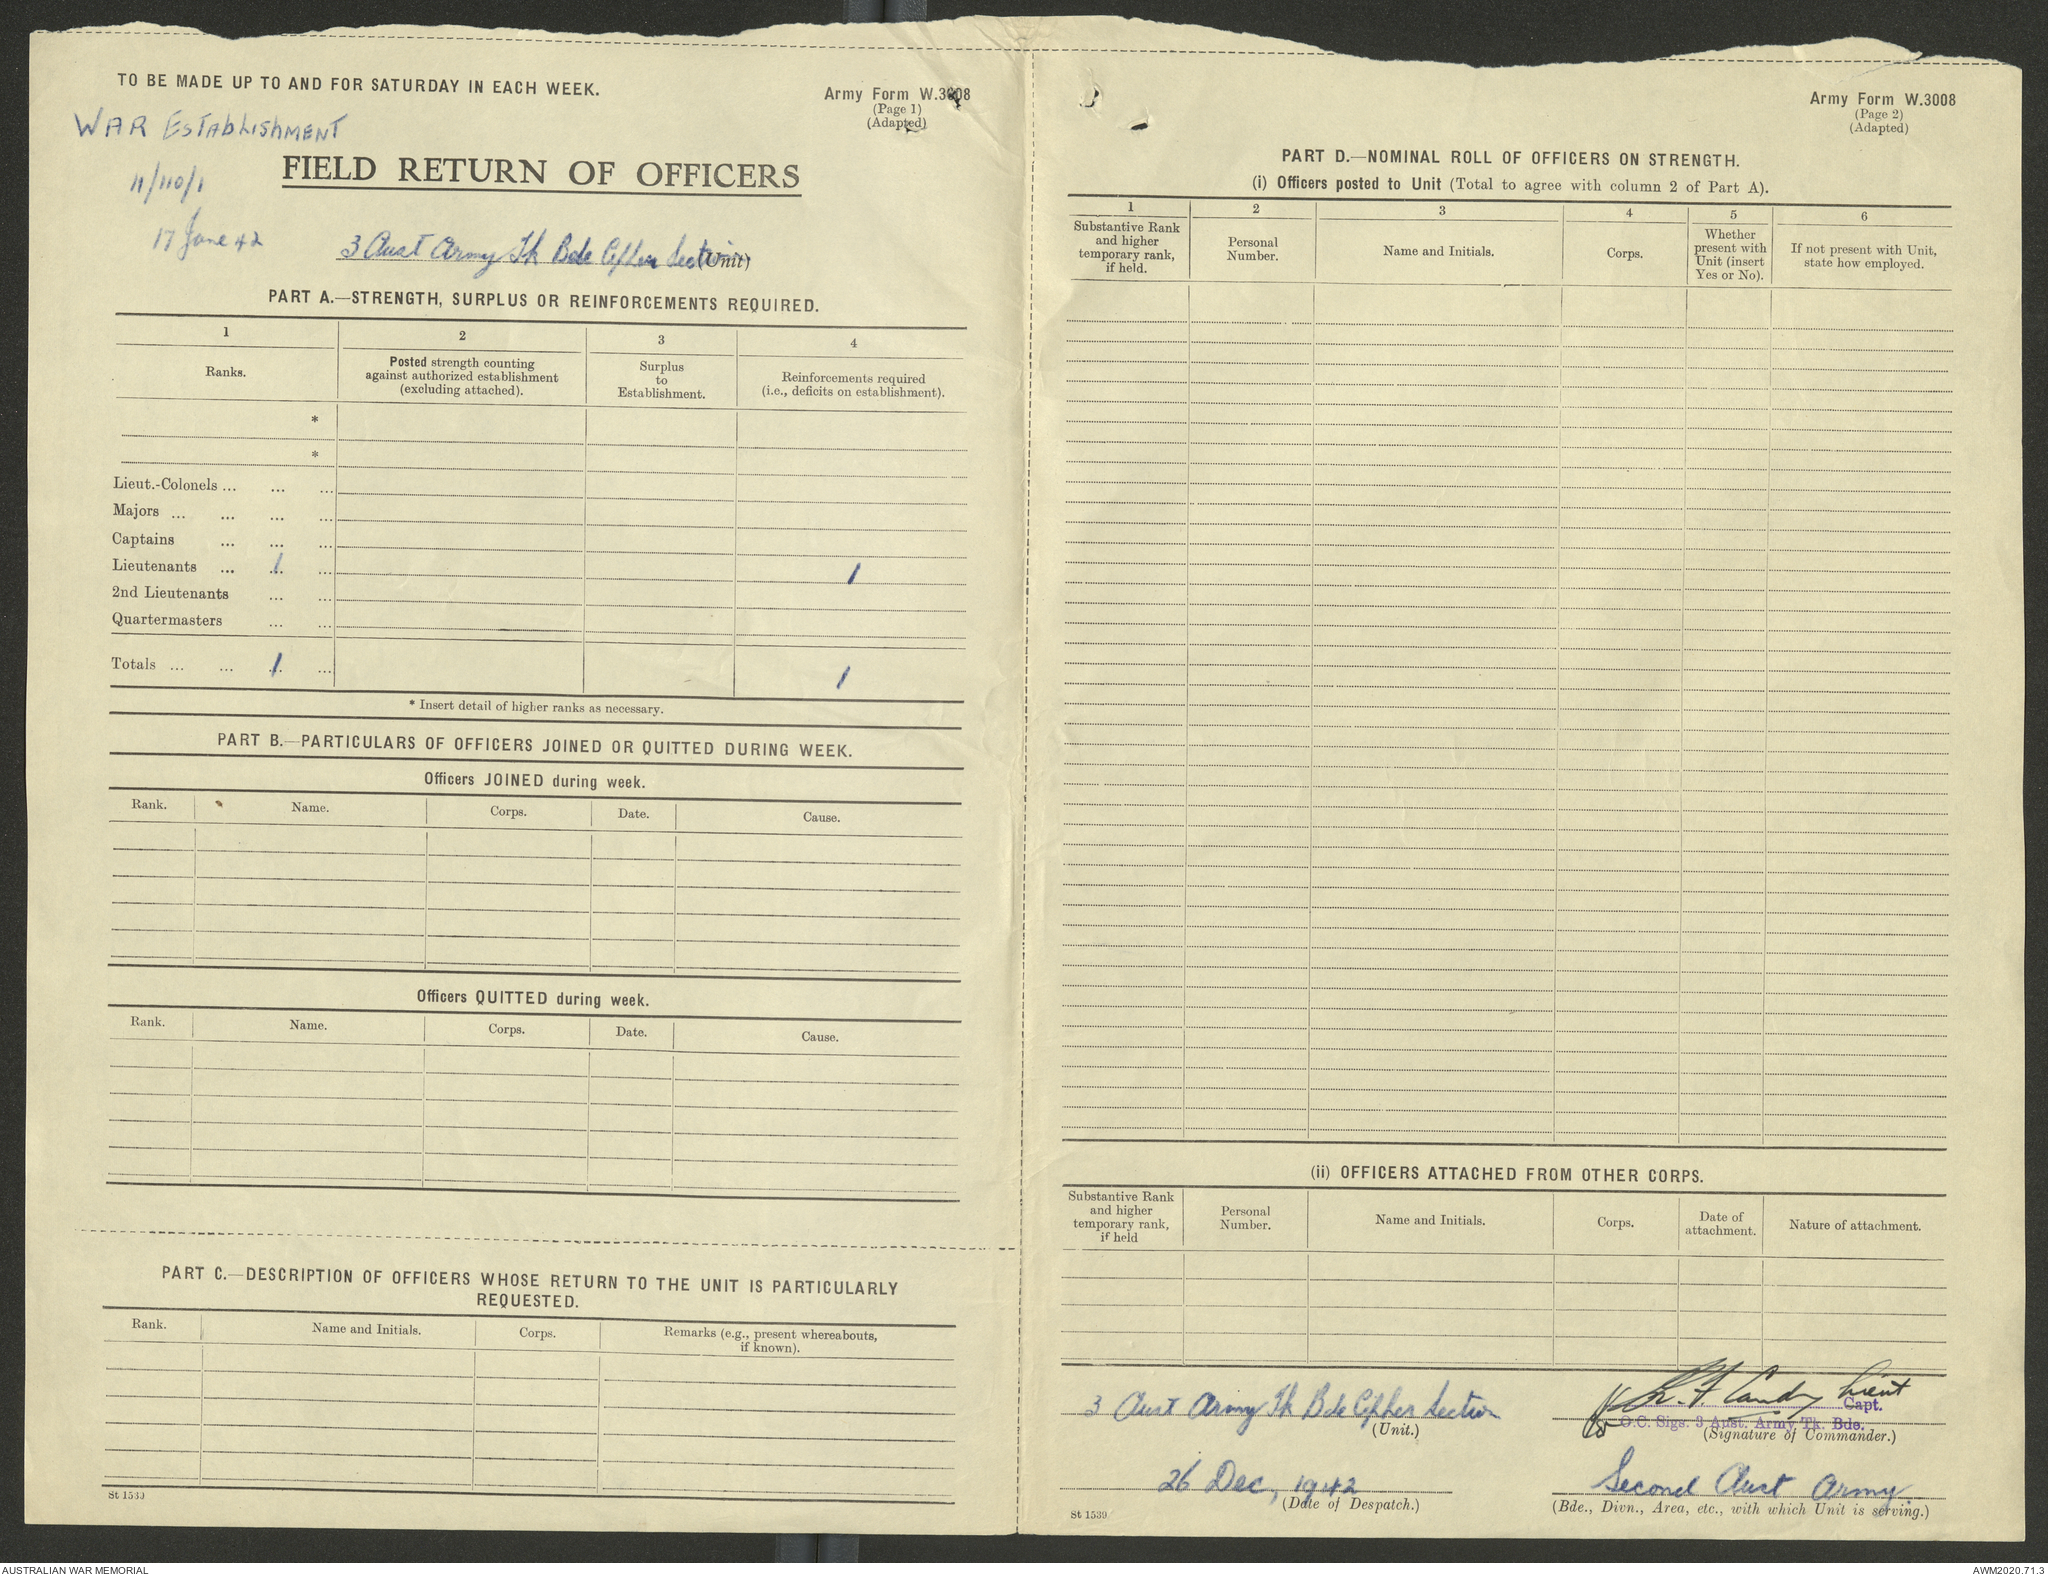 TO BE MADE UP TO AND FOR SATURDAY IN EACH WEEK.
Army Form W.3008
(Page 1)
(Adapted)
WAR EsTAbLIShMENT
11/110/1
17 June 42
FIELD RETURN OF OFFICERS
3 Aust Army Tk Bde Cipher Section (Unit)
PART A.—STRENGTH, SURPLUS OR REINFORCEMENTS REQUIRED.
1 2 3 4
Ranks. Posted strength counting against authorized establishment (excluding attached). Surplus to Establishment. Reinforcements required (i.e., deficits on establishment).
*
*
Lieut.-Colonels ... ... ...
Majors ... ... ... ...
Captains ... ... ...
Lieutenants ... 1 ... 1
2nd Lieutenants ... ...
Quartermasters ... ...
Totals ... ... 1 ... 1
* Insert detail of higher ranks as necessary.
PART B.—PARTICULARS OF OFFICERS JOINED OR QUITTED DURING WEEK.
Officers JOINED during week.
Rank. Name. Corps. Date. Cause.
Officers QUITTED during week.
Rank. Name. Corps. Date. Cause.
PART C.—DESCRIPTION OF OFFICERS WHOSE RETURN TO THE UNIT IS PARTICULARLY
REQUESTED.
Rank. Name and Initials. Corps. Remarks (e.g., present whereabouts, if known).
St 1539
Army Form W.3008
(Page 2)
(Adapted)
PART D.—NOMINAL ROLL OF OFFICERS ON STRENGTH.
(i) Officers posted to Unit (Total to agree with column 2 of Part A).
1 2 3 4 5 6
Substantive Rank and higher temporary rank, if held. Personal Number. Name and Initials. Corps. Whether present with Unit (insert Yes or No). If not present with Unit, state how employed.
(ii) OFFICERS ATTACHED FROM OTHER CORPS.
Substantive Rank and higher temporary rank, if held Personal Number. Name and Initials. Corps. Date of attachment. Nature of attachment.
3 Aust Army Tk Bde Cipher Section
(Unit.)
Lieut
Capt.
for O.C. Sigs. 3 Aust. Army Tk. Bde.
(Signature of Commander.)
26 Dec, 1942
(Date of Despatch.)
Second Aust Army.
(Bde., Divn., Area, etc., with which Unit is serving.)
St 1539
AUSTRALIAN WAR MEMORIAL
AWM2020.71.3